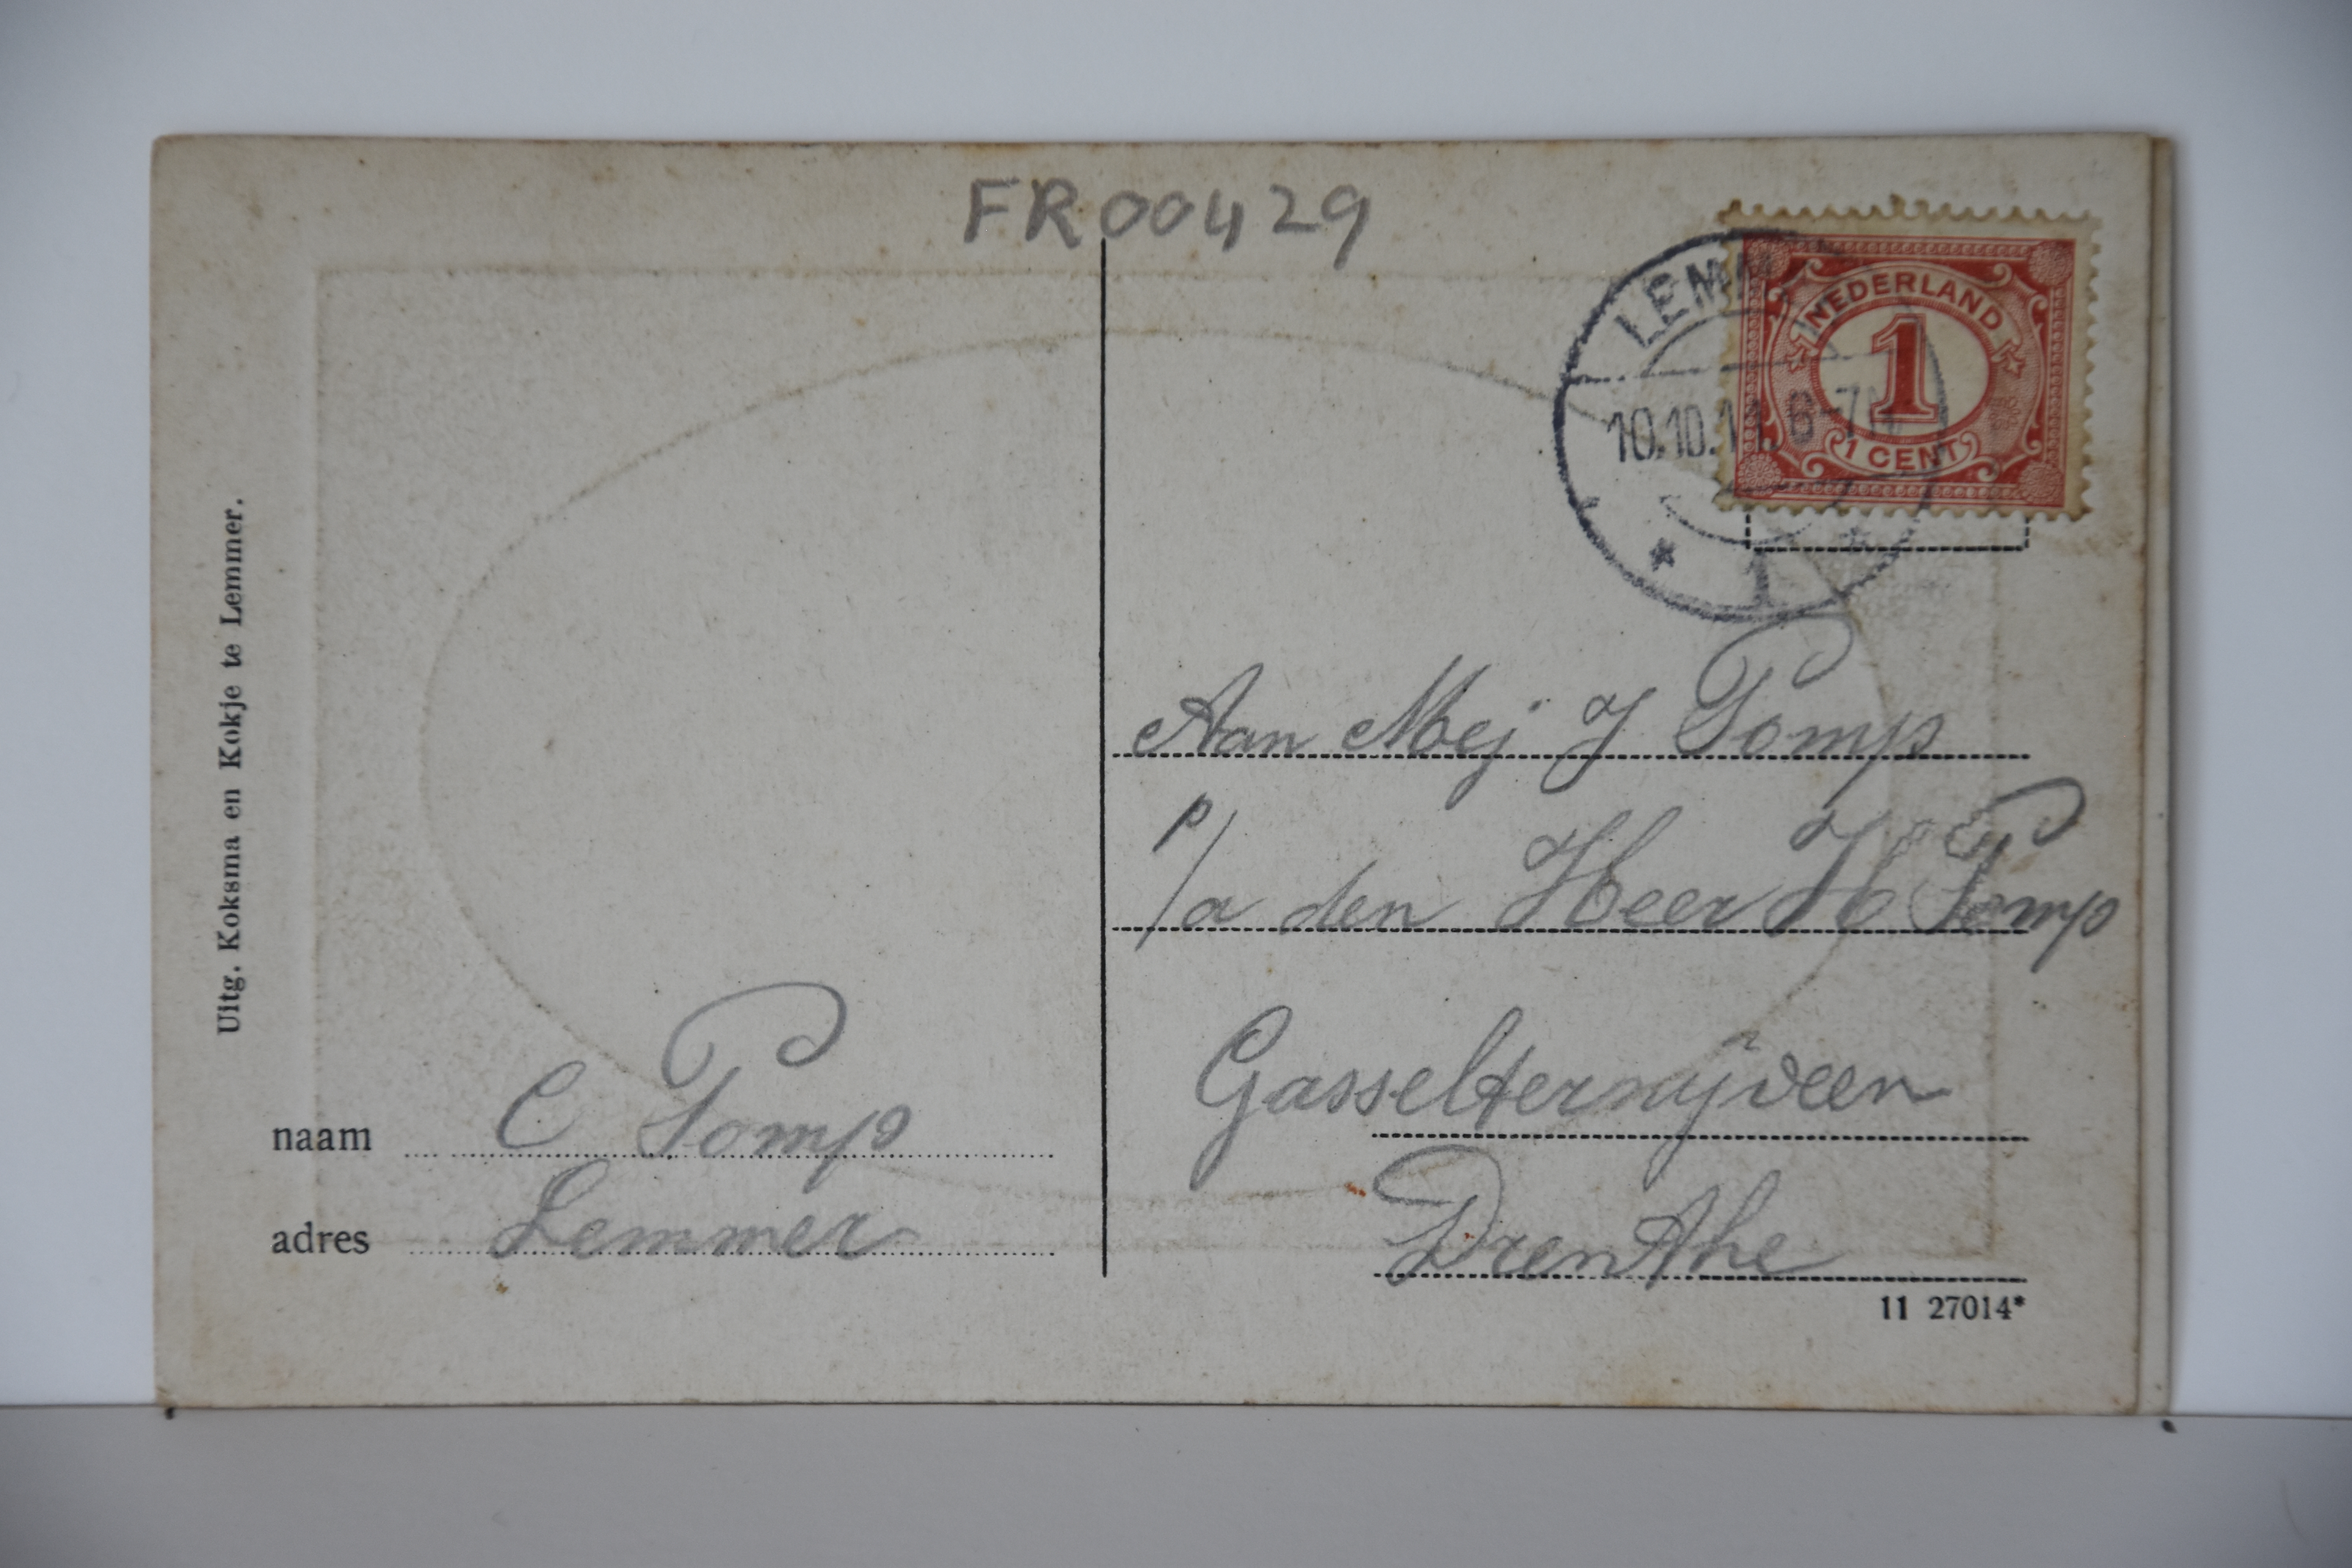 FR00429
LEMM
10.10.11 6-7N
1
NEDERLAND
1
1 CENT
Aan Mej J Pomp
p/a den Heer H Pomp
Gasselternijveen
Drenthe
11 27014*
Uitg. Koksma en Kokje te Lemmer.
naam C Pomp
adres Lemmer